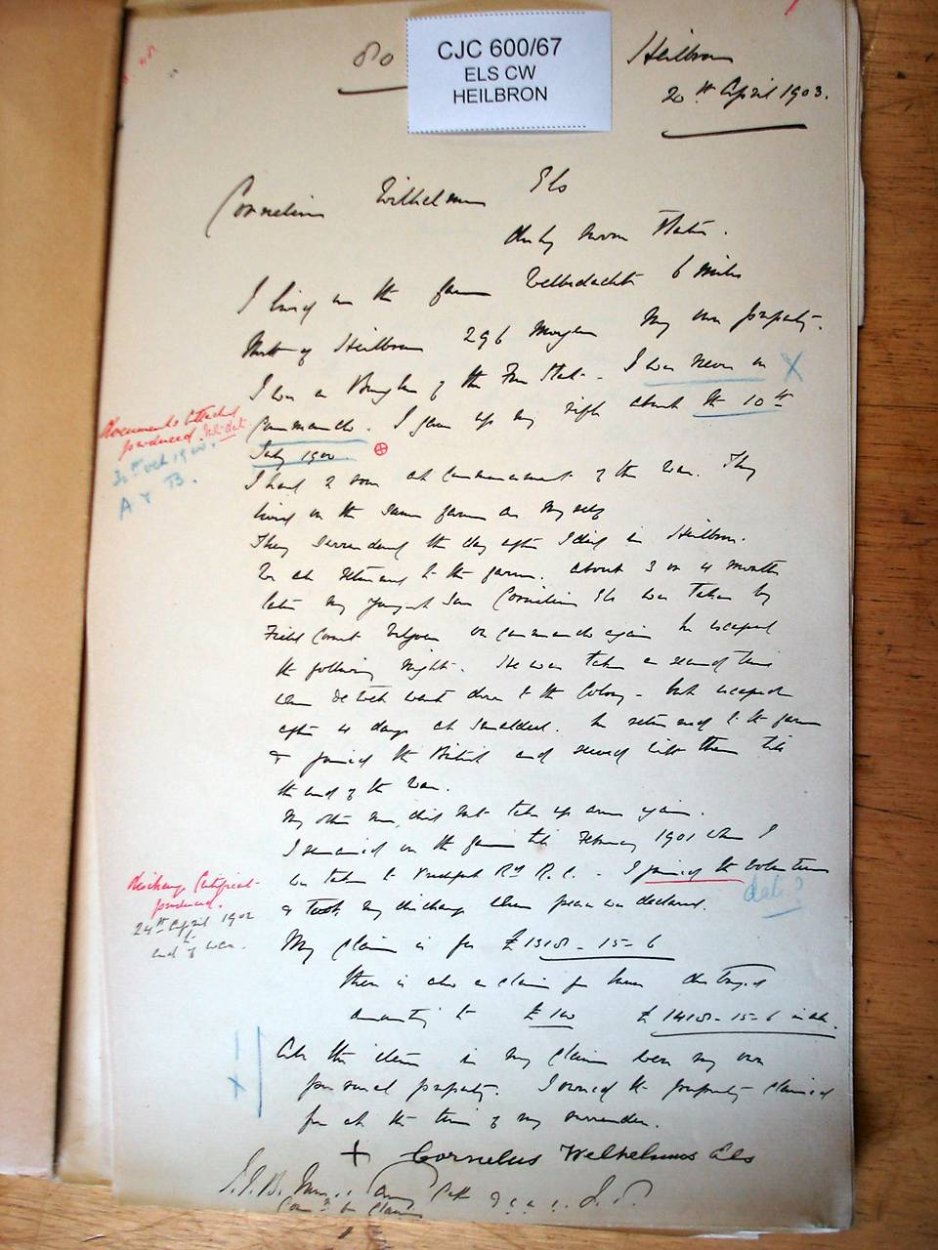 80
CJC 600/67
ELS CW
HEILBRON
Heilbron
20th April 1903.
Cornelius Wilhelmus Els
duly sworn States.
I lived on the farm 6 miles
of Heilbron 296 Morgen My own property.
I was a Burgher of the Free State. I was never on X
Commando. I gave up my rifle about the 10th
July 1900
Documents
produced.
30th Oct 1900.
A & B.
I had 2 sons at commencement of the War. They
lived on the same farm as myself
They surrendered the day after I did in Heilbron.
We all returned to the farm. About 3 or 4 months
later my youngest son Cornelius Els was taken by
Field Cornet on commando again he escaped
the following night. He was taken a second time
when De Wet went down to the Colony - but escaped
after 4 days at Smaldeel. he returned to the farm
& joined the British and served with them till
the end of the War.
My other son did not take up arms again.
I remained on the farm till February 1901 when I
was taken to Vredefort Rd R.C. - I joined the Volunteers
date?
& took my discharge when peace was declared.
Discharge Certificate
produced.
24th April 1902
to
end of war.
My claim is for £ 1318-15-6
there is also a claim for house destroyed
amounting to £100 £ 1418-15-6 in all.
All the items in my claim were my own
personal property. I owned the property claimed
for at the time of my surrender.
+ Cornelus Welhelmus Els